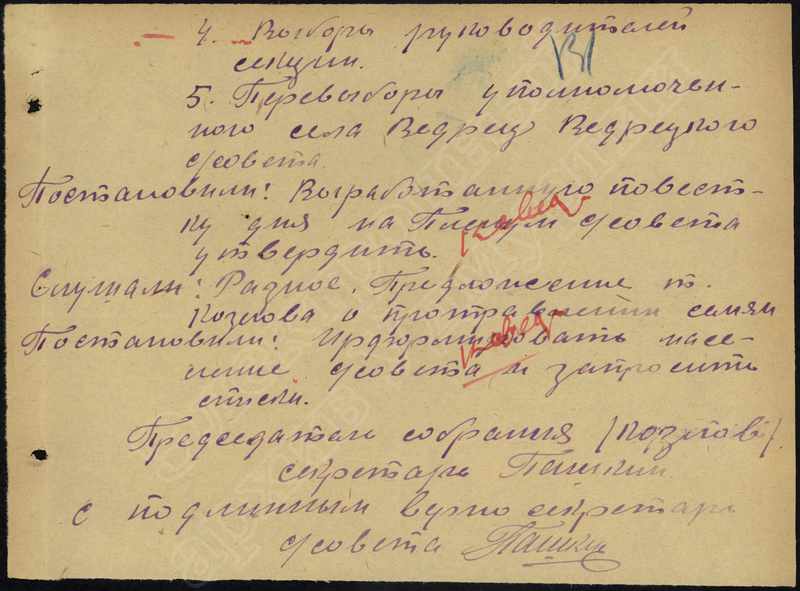 4. Выборы руководителей
секции.
5. Перевыборы уполномочен-
ного села Ведрец Ведрецкого
с/совета.
Постановили: Выработанную повест-
ку дня на Пленум с/совета
утвердить.
Слушали: Разное. Предложение т.
Козлова о протравлении семян
Постановили: Информировать насе-
ление с/совета и запросить
списки.
Председатель собрания /Козлов/
секретарь Пашкин
с подлинным верно секретарь
с/совета Пашкин